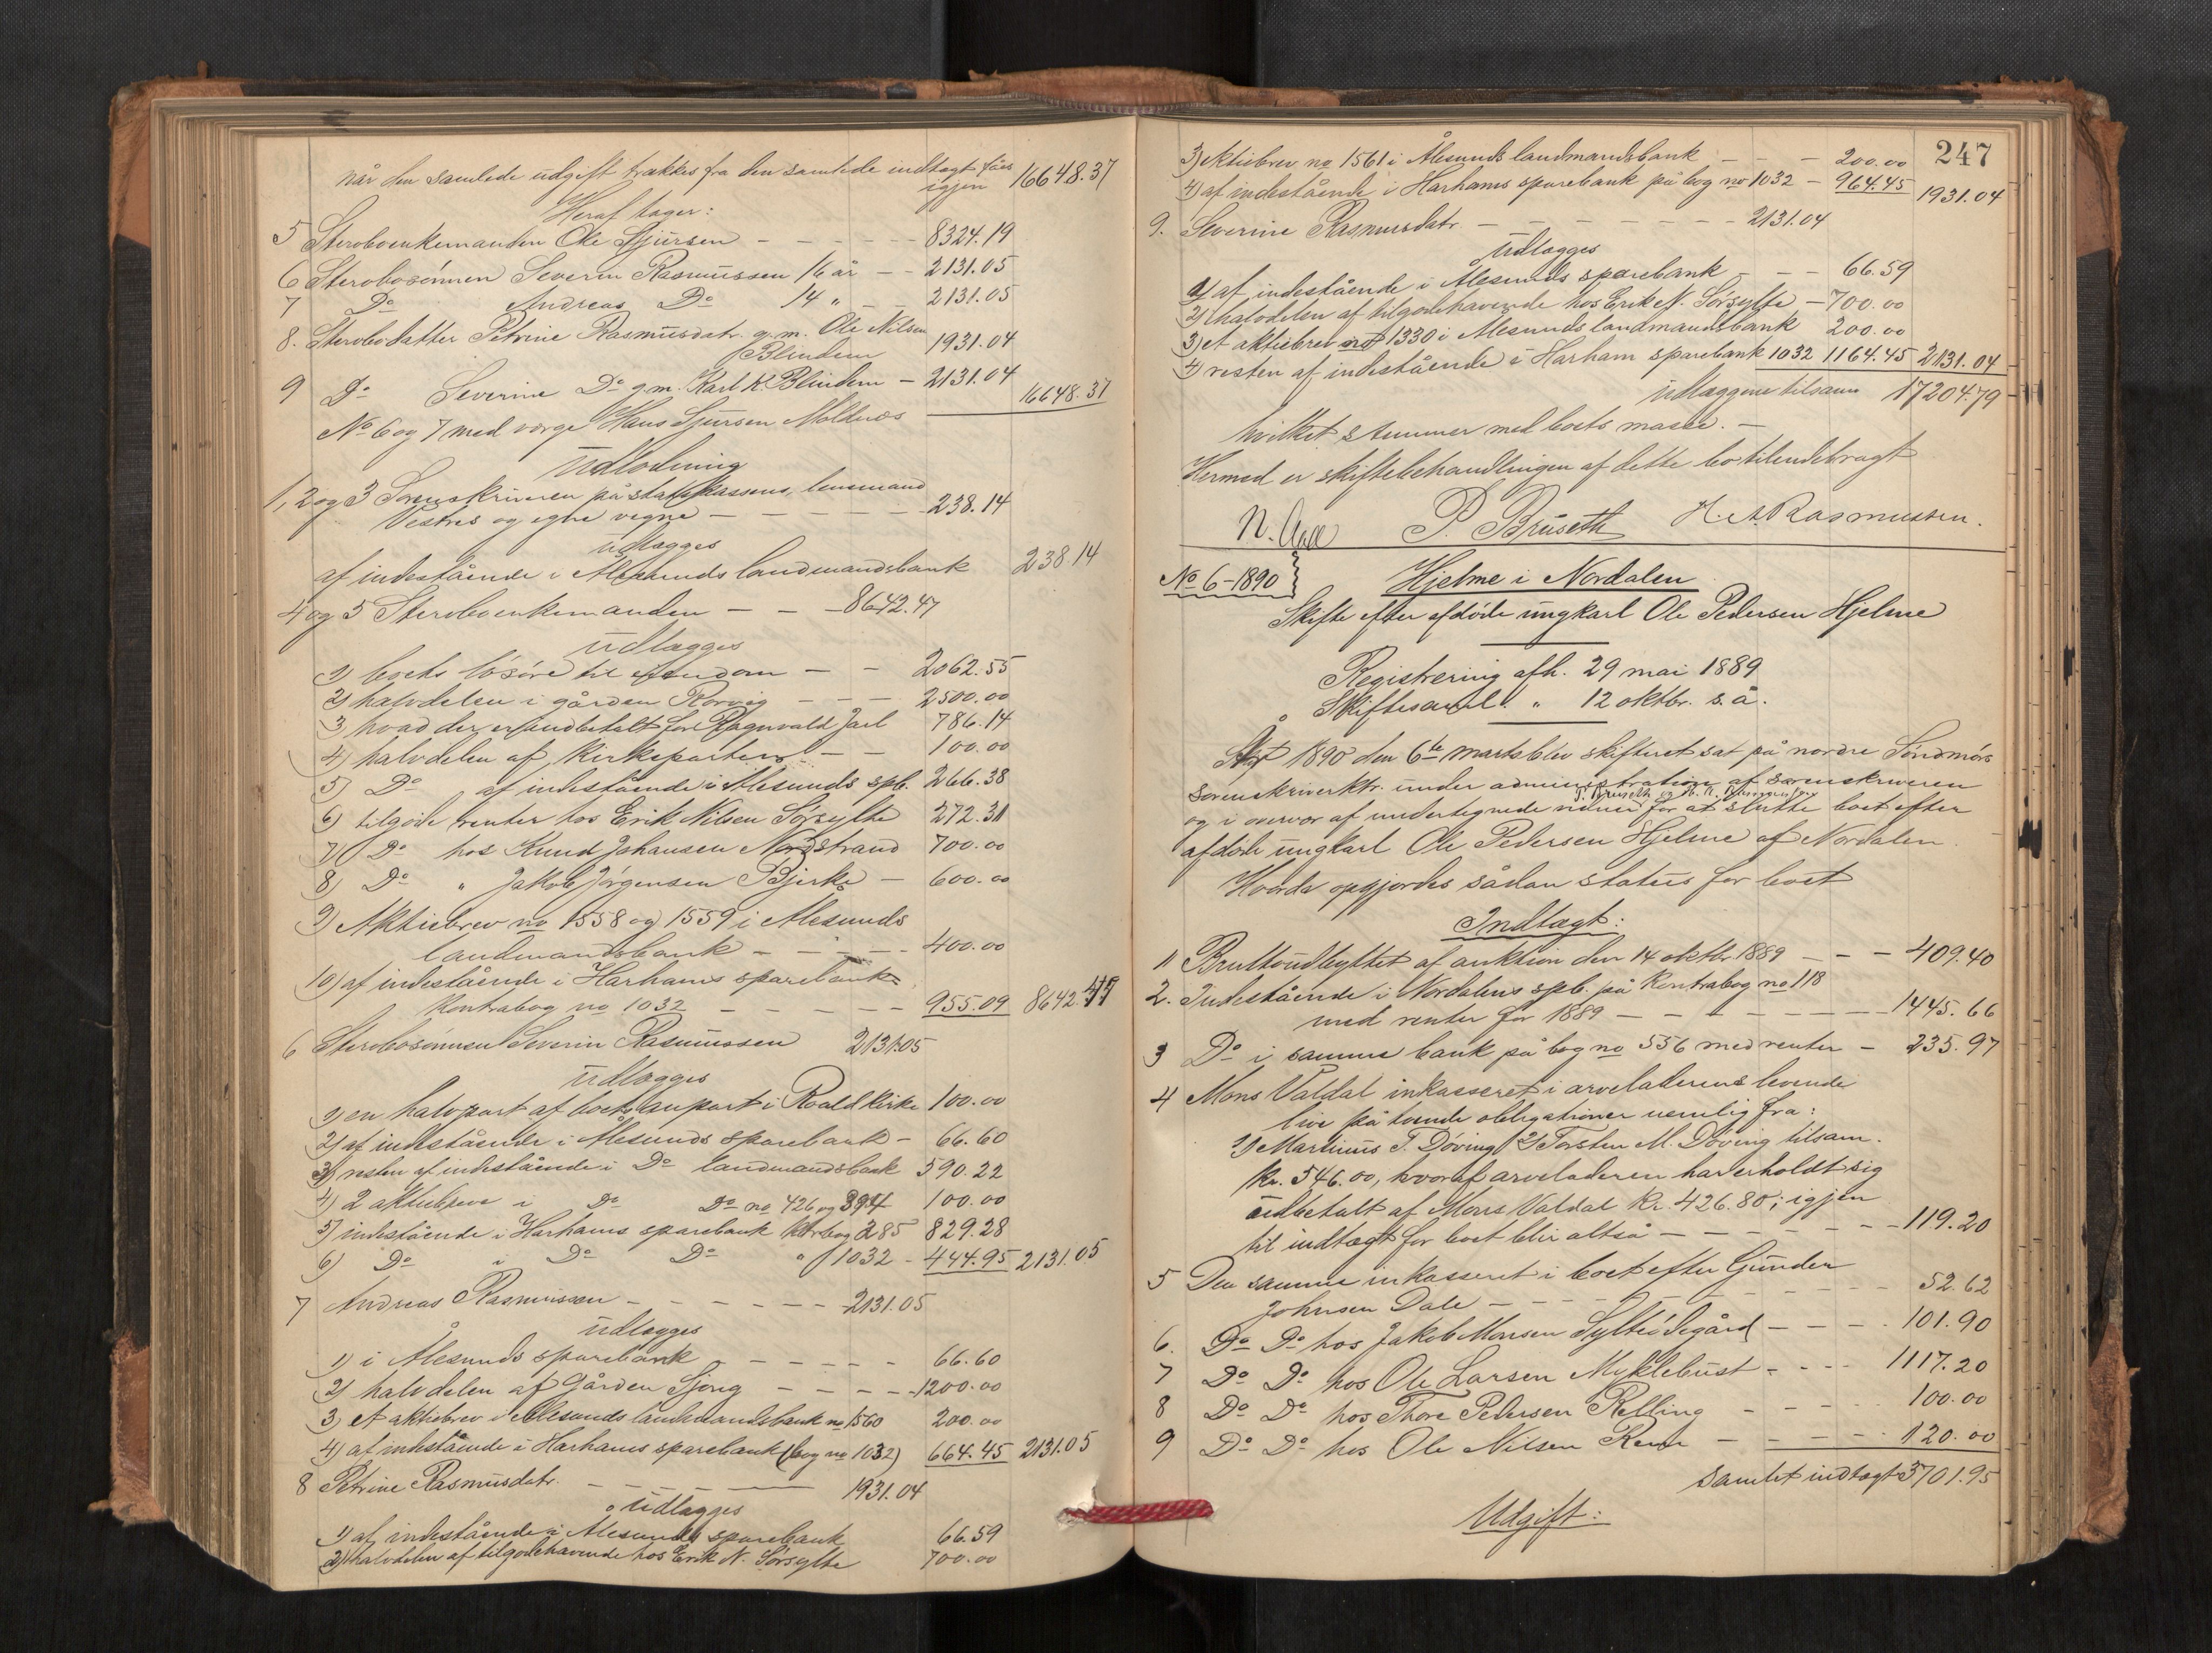 når den samlede udgift trækkes fra den samlede indtægt fåes
igjen 16648.37
Heraf tager:
5 Sterboenkemanden Ole Sjursen - - - - - 8324.19
6 Sterbosønnen Severin Rasmussen 16 år - - 2131.05
7 Do Andreas Do 14 " - - 2131.05
8. Sterbodatter Petrine Rasmusdatr. g.m. Ole Nilsen
Blindem 1931.04
9 Do Severine Do g.m. Karl K. Blindem - 2131.04 16648.37
No 6 og 7 med værge Hans Sjursen Molnes
Udlodning
1, 2 og 3 Sorenskriveren på statskassens, lensmand
Vestres og egne vegne - - - - - 238.14
udlægges
af indestående i Ålesunds landmandsbank 238.14
4 og 5 Sterboenkemanden - - - 8642.47
Udlægges
1) boets løsøre til eiendom - - 2062.55
2) halvdelen i gården Rørvig - - - 2500.00
3, hvad der er indbetalt for Ragnvald Jarl 786.14
4) halvdelen af kirkeparten - - 100.00
5) Do af indestående i Ålesunds spb. 266.38
6) tilgode renter hos Erik Nilsen Sørsylte 272.31
7) Do hos Knud Johansen Nordstrand 700.00
8) Do " Jakob Jørgensen Bjerke - 600.00
9) Aktiebrev no 1558 og 1559 i Ålesunds
landmandsbank - - - - 400.00
10) af indestående i Harhams sparebank
Kontrabog no 1032 - - - - - 955.09 8642.47
6 Sterbosønnen Severin Rasmussen 2131.05
udlægges
1) en halvpart af boets anpart i Roald kirke 100.00
2) af indestående i Ålesunds sparebank - 66.60
3) resten af indestående i Do landmandsbank 590.22
4) 2 aktiebreve i Do Do no 426 og 394 100.00
5) indestående i Harhams sparebank ktrbog 285 829.28
6) Do i Do Do " 1032 - 444.95 2131.05
7 Andreas Rasmussen - - - - - - 2131.05
udlægges
1) i Ålesunds sparebank - - - - - 66.60
2) halvdelen af gården Sjong - - - - 1200.00
3, et aktiebrev i Ålesunds landmandsbank no 1560 200.00
4) af indestående i Harhams sparebank (bog no 1032) 664.45 2131.05
8 Petrine Rasmusdatr. - - - - 1931.04
udlægges
1) af indestående i Ålesunds sparebank 66.59
2) halvdelen af tilgodehavende hos Erik N. Sørsylte 700.00
247
3) aktiebrev no 1561 i Ålesunds landmandsbank - - - 200.00
4) af indestående i Harhams sparebank på bog no 1032 - 964.45 1931.04
9. Severine Rasmusdatr. - - - - - - - 2131.04
Udlægges
1) af indestående i Ålesunds sparebank - - - 66.59
2) halvdelen af tilgodehavende hos Erik N. Sørsylte - 700.00
3) et aktiebrev no 1330 i Ålesunds landmandsbank 200.00
4) resten af indestående i Harham sparebank 1032 1164.45 2131.04
udlæggene tilsam 17204.79
hvilket stemmer med boets masse. -
Hermed er skiftebehandlingen af dette bo tilendebragt
N. Aall P. Bruseth H. A. Rasmussen.
No 6-1890
Hjelme i Nordalen
Skifte efter afdøde ungkarl Ole Pedersen Hjelme
Registrering afh. 29 mai 1889
Skiftesaml. " 12 oktbr. s.å.
År 1890 den 6te marts blev skifteret sat på nordre Søndmørs
sorenskriverktr. under administration af sorenskriveren
P. Bruseth og H. A. Rasmussen
og i overvær af undertegnede vidner for at slutte boet efter
afdøde ungkarl Ole Pedersen Hjelme af Nordalen.
Hvorda opgjordes sådan status for boet
Indtægt:
1) Bruttoudbyttet af auktion den 14 oktbr. 1889 - - - 409.40
2. Indestående i Nordalens spb. på Kontrabog no 118
med renter for 1889 - - - - - - - 1445.66
3 Do i samme bank på bog no 556 med renter - 235.97
4 Mons Valdal inkasseret i arveladerens levende
live på tvende obligationer nemlig fra:
1) Martinus T. Døving 2) Torsten M. Døving tilsam.
kr. 546.00, hvoraf arveladeren har erholdt sig
udbetalt af Mons Valdal kr. 426.80; igjen
til indtægt for boet blir altså - - - - - - 119.20
5 Den samme inkasseret i boet efter Gunder
Johnsen Dale - - - - - - - - 52.62
6. Do Do hos Jakob Monsen Sylteødegård - - - - 101.90
7 Do Do hos Ole Larsen Myklebust - - - - 1117.20
8 Do Do hos Thore Pedersen Relling - - - - 100.00
9 Do Do hos Ole Nilsen Rem - - - - - 120.00
samlet indtægt 3701.95
Udgift: